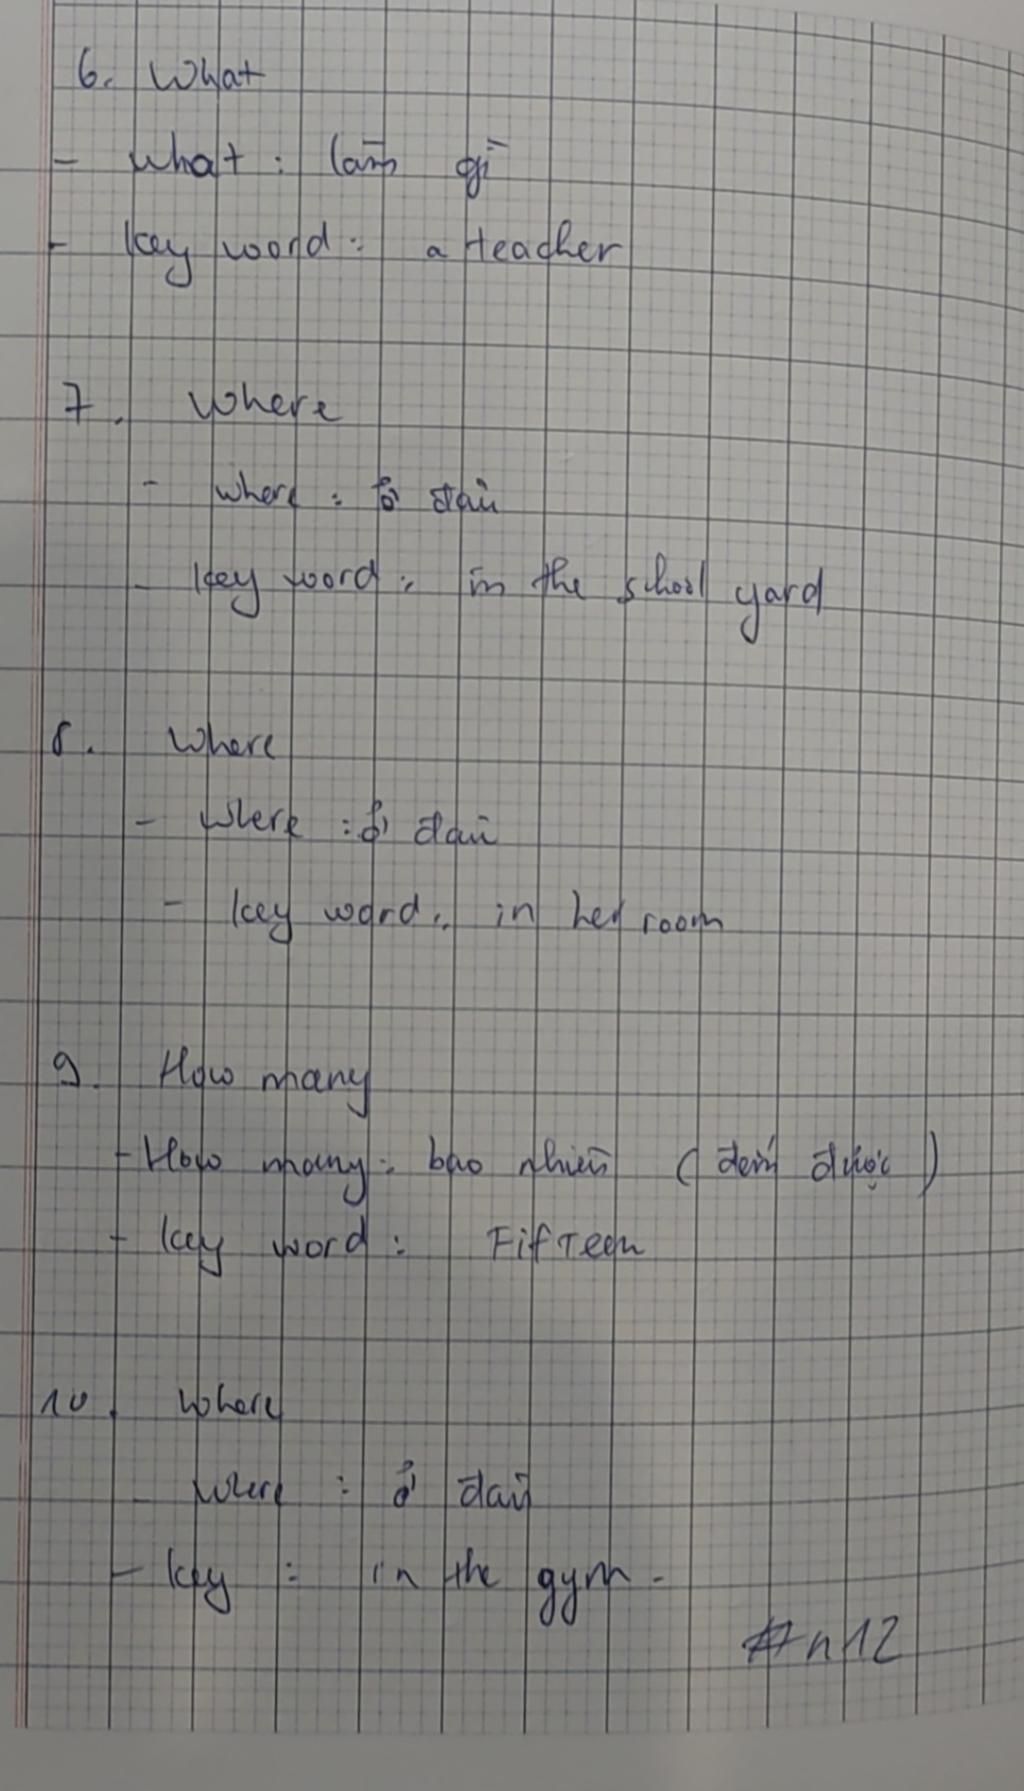 6. What
- what : làm gì
- key word : a teacher
7. Where
- where : ở đâu
- key word : in the school yard
8. Where
- where : ở đâu
- key word : in her room
9. How many
- How many : bao nhiêu ( đếm được )
- key word : Fifteen
10. Where
- where : ở đâu
- key : in the gym.
#n12